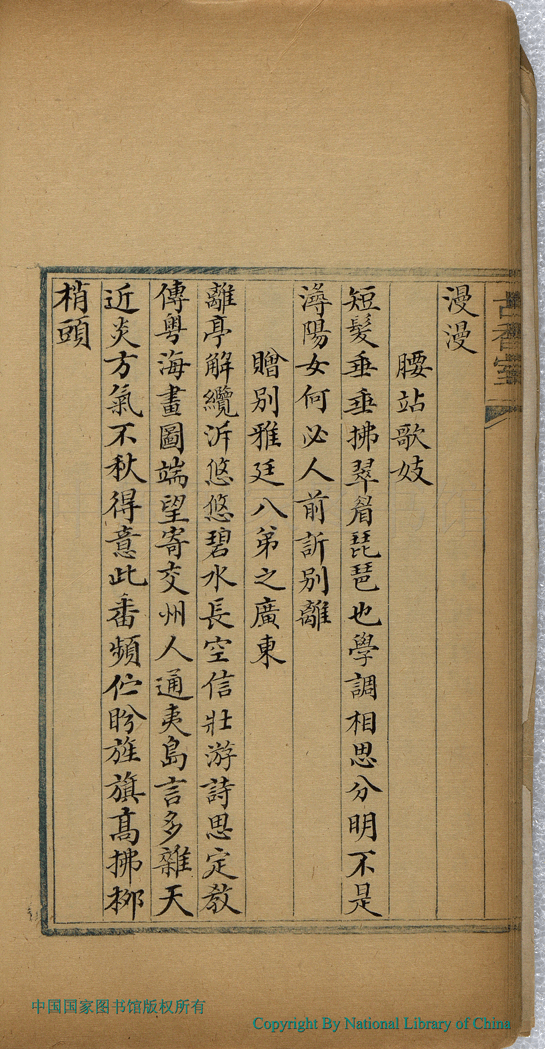 古香室
漫漫
腰站歌妓
短髮垂垂拂翠眉琵琶也學調相思分明不是
潯陽女何必人前訴別離
贈別雅廷八弟之廣東
離亭解纜泝悠悠碧水長空信壯游詩思定教
傳粵海畫圖端望寄交州人通夷島言多雜天
近炎方氣不秋得意此番頻伫盼旌旗高拂桞
梢頭
中国国家图书馆版权所有
Copyright By National Library of China